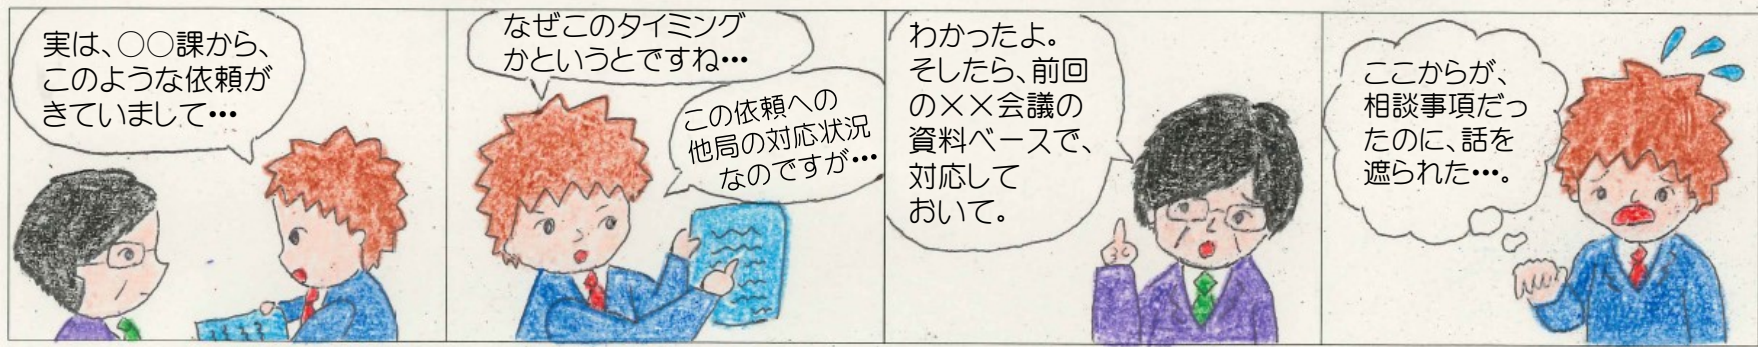 実は、○○課から、
このような依頼が
きていまして･･･
なぜこのタイミング
かというとですね･･･
この依頼への
他局の対応状況
なのですが･･･
わかったよ。
そしたら、前回
の××会議の
資料ベースで、
対応して
おいて。
ここからが、
相談事項だっ
たのに、話を
遮られた･･･。